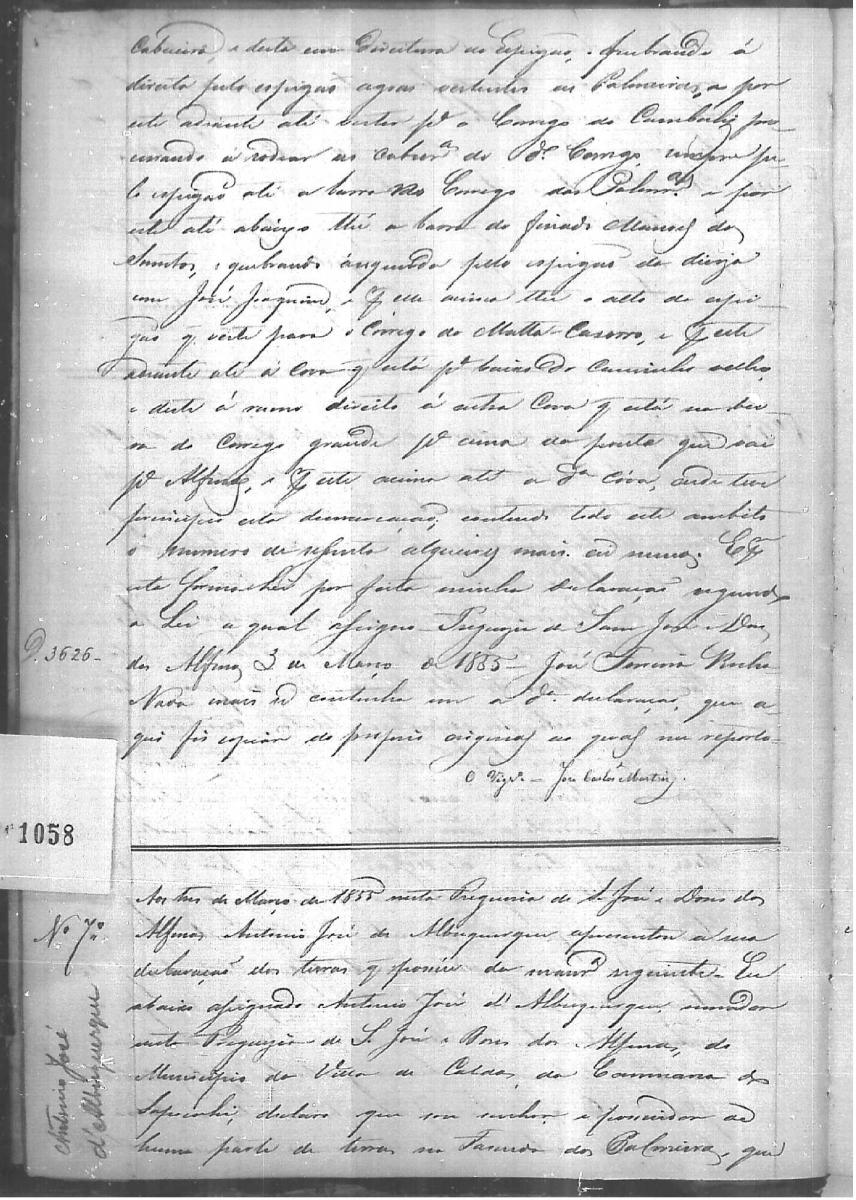 Cabeceira, e desta em Direitura ao Espigão, quebrando á
direita pelo espigão agoas vertentes as Palmeiras, e por
este adiante até verter pª o Corrego do
curando á rodear as cabecrªs do dº Corrego, sempre pe-
lo espigão até a barra do Corrego das Palmrªs e por
este até abaixo thé a barra do finado Manoel dos
Santos, e quebrando á esquerda pelo espigão da diviza
com José Joaquim, e pr este acima the o alto do espi-
gão q. verte para o Corrego do Matta-Casorro, e pr este
adiante até á Cova q está pr baixo do Caminho velho,
e deste á rumo direito á outra Cova q está na bei-
ra do Corrego grande pr cima da ponte que vai
pª Alfenas, e pr este acima até a dª Cova, onde teve
principio esta demarcação, contendo todo este ambito
o numero de secenta alqueires mais ou menos. E pr
esta forma hei por feita minha declaração segundo
a Lei a qual assigno - Freguezia de Sam José e Dores
dos Alfenas 3 de Março de 1855 - José Ferreira Rocha
Nada mais se continha em a dª declaração, que a-
qui fis copiar do proprio original ao qual me reporto -
O Vigrº - José Carlos Martins.
D. 3626-
1058
Nº 7º
Antonio José
d'Albuquerque
Aos tres de Março de 1855 nesta Freguezia de S. José e Dores dos
Alfenas Antonio José de Albuquerque apresentou a sua
declaração das terras q possúe da manrª seguinte - Eu
abaixo assignado Antonio José d'Albuquerque, morador
nesta Freguezia de S. José e Dores dos Alfenas, do
Municipio da Villa de Caldas, da Commarca do
Sapucahi, declaro que sou senhor, e possuidor de
huma parte de terras na Fazenda das Palmeiras, que